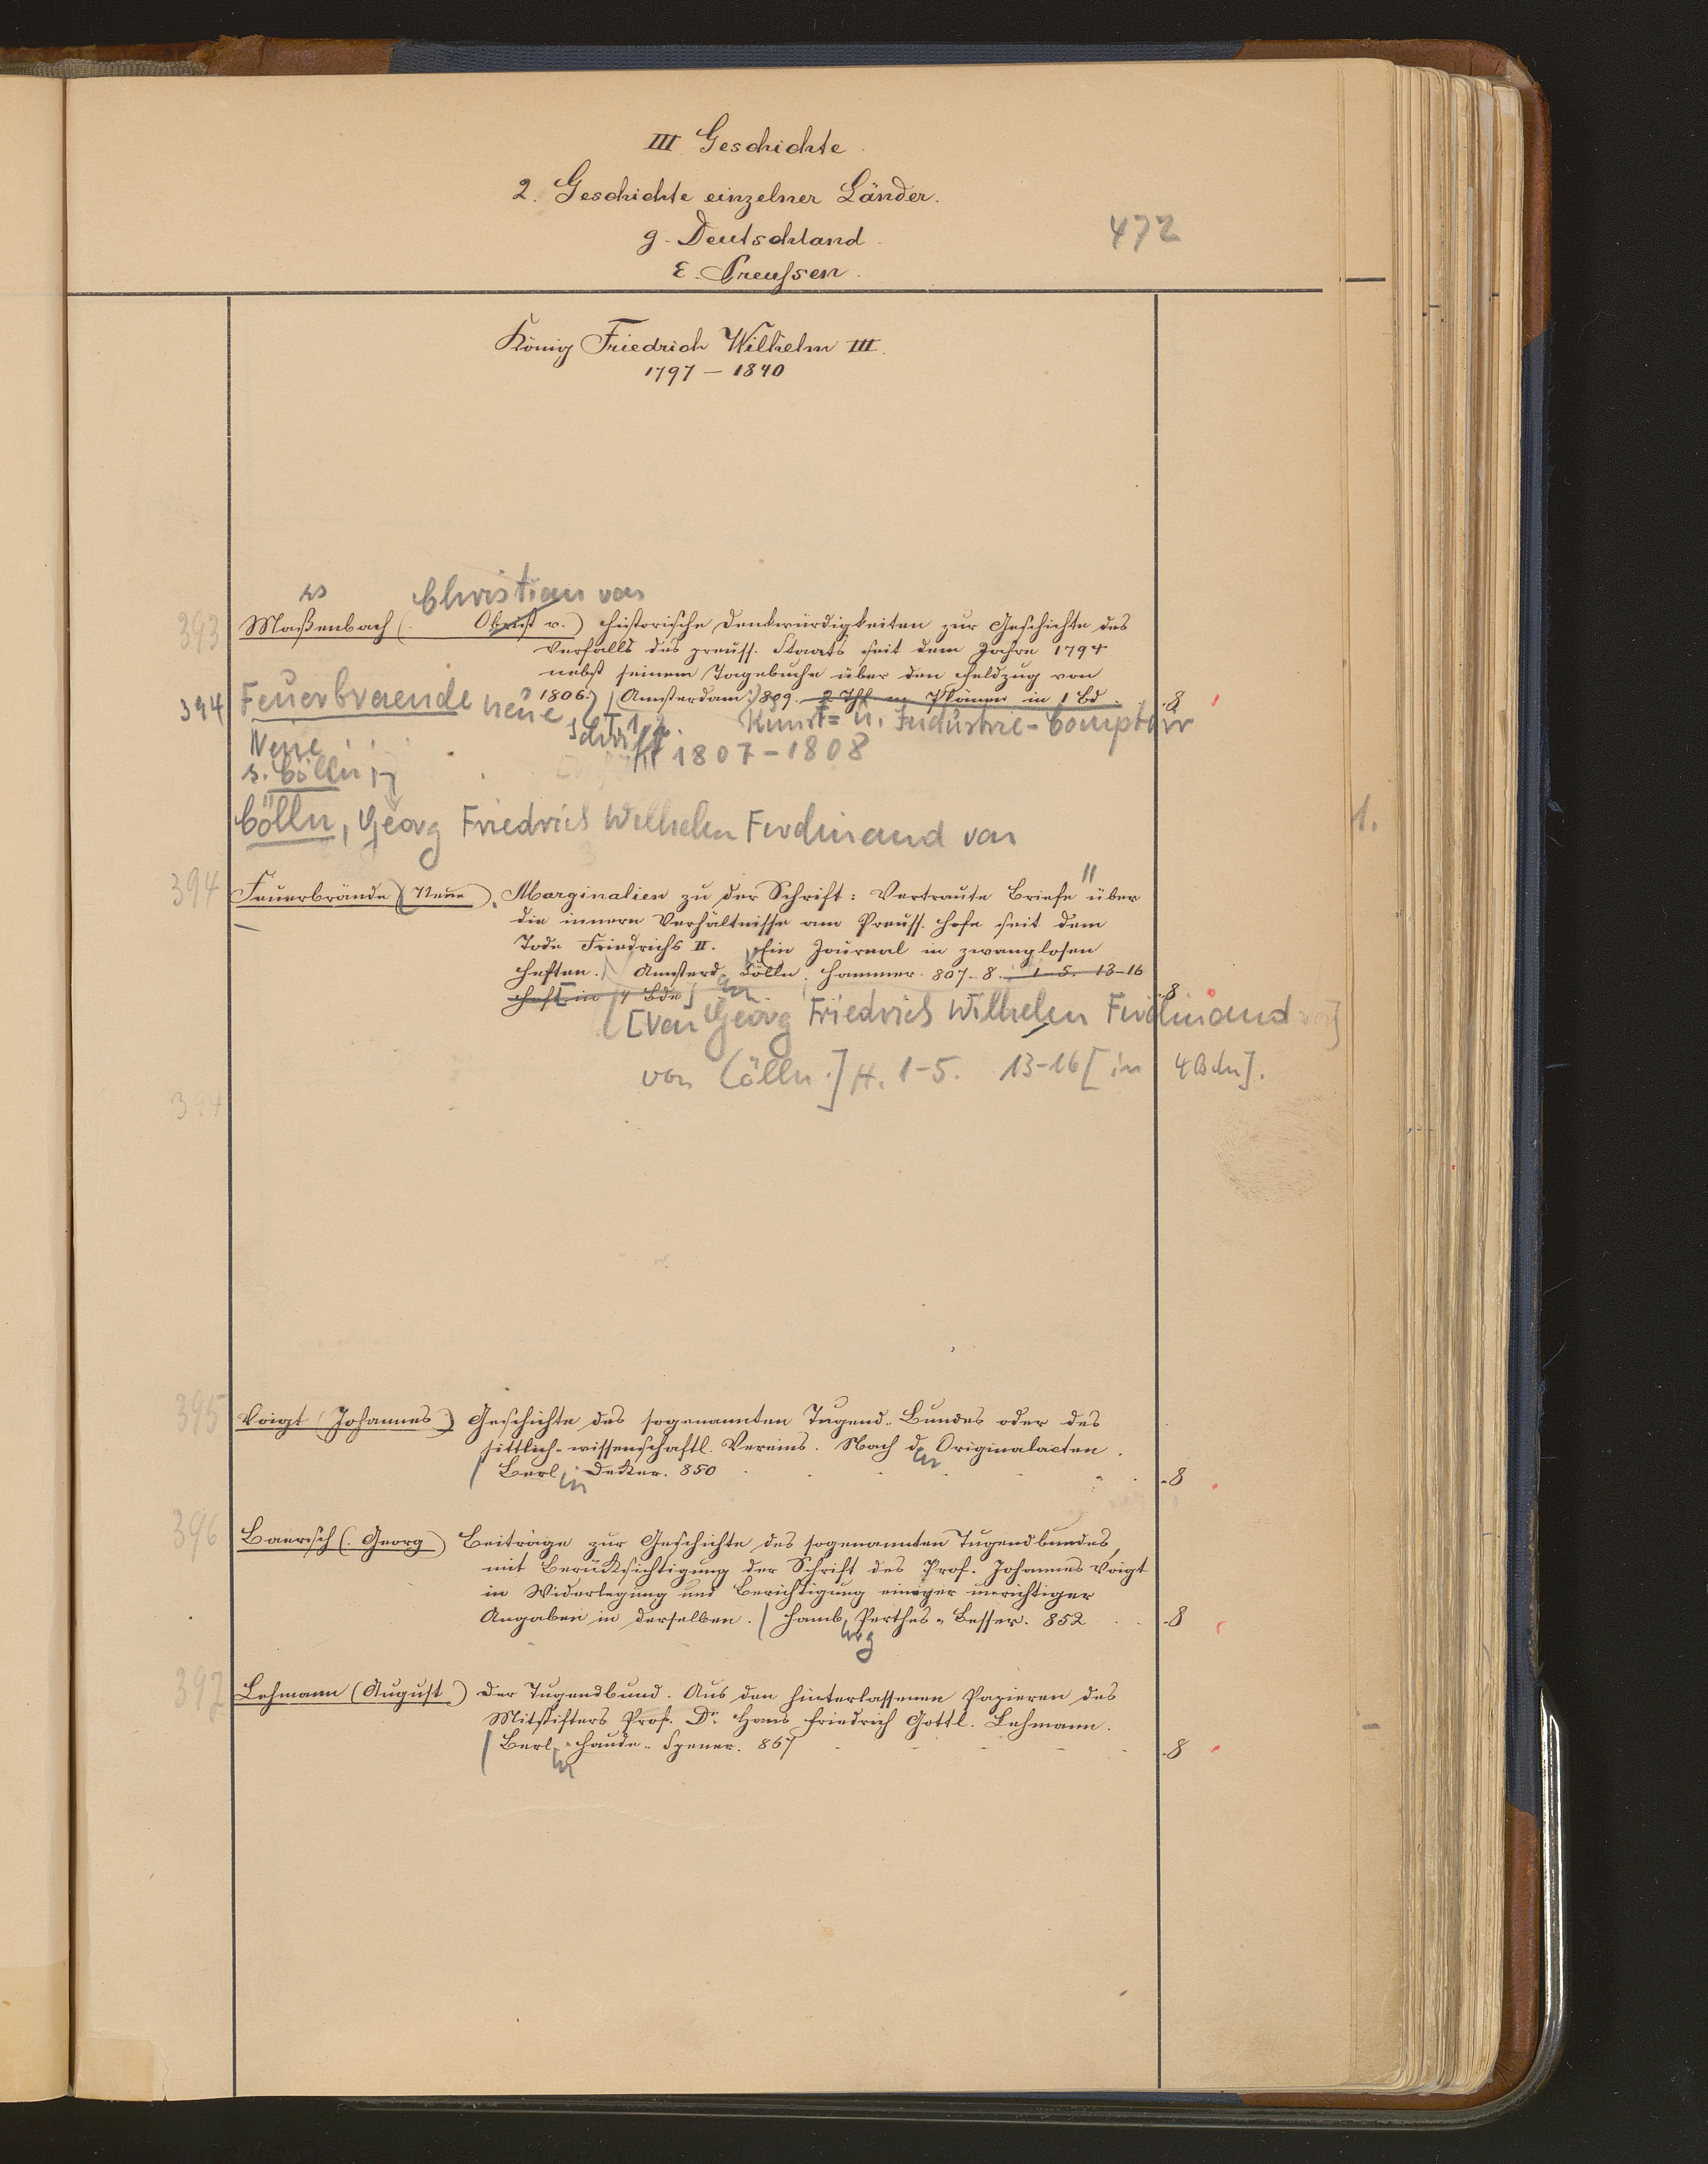 III. Geschichte.
2. Geschichte einzelner Länder.
g. Deutschland.
472
ε. Preussen.
König Friedrich Wilhelm III.
1797 – 1840
ss Christian von
393 Maßenbach (. Obrist v.) Historische Denkwürdigkeiten zur Geschichte des
Verfalls des preuss. Staats seit dem Jahre 1794
nebst seinem Tagebuche über den Feldzug von
1806. Amsterdam. 809. in 1 Bd. 8
394 Feuerbraende neue Kunst= u. Industrie-Comptoir
Neue 1807-1808
s. Cölln,
Cölln, Georg Friedrich Wilhelm Ferdinand von
1.
394 Feuerbrände (Neue). Marginalien zu der Schrift: Vertraute Briefe " über
die innern Verhältnisse am Preuss. Hofe seit dem
Tode Friedrichs II. Ein Journal in zwanglosen
Heften. Amsterd. Cölln. Hammer. 807-8. 1-5. 13-16
Heft in 4 Bde 8
[Von Georg Friedrich Wilhelm Ferdinand
von Cölln.] H. 1-5. 13-16 [in 4 Bdn].
394
395 Voigt (Johannes) Geschichte des sogenannten Tugend-Bundes oder des
sittlich-wissenschaftl. Vereins. Nach den Originalacten.
Berlin Decker. 850 8
396 Baersch (. Georg) Beiträge zur Geschichte des sogenannten Tugendbundes,
mit Berücksichtigung der Schrift des Prof. Johannes Voigt
in Widerlegung und Berichtigung einiger unrichtiger
Angaben in derselben. Hamburg Perthes-Besser. 852 8
397 Lehmann (August) Der Tugendbund. Aus den hinterlassenen Papieren des
Mitstifters Prof. Dr. Hans Friedrich Gottl. Lehmann.
Berlin Haude-Spener. 867 8